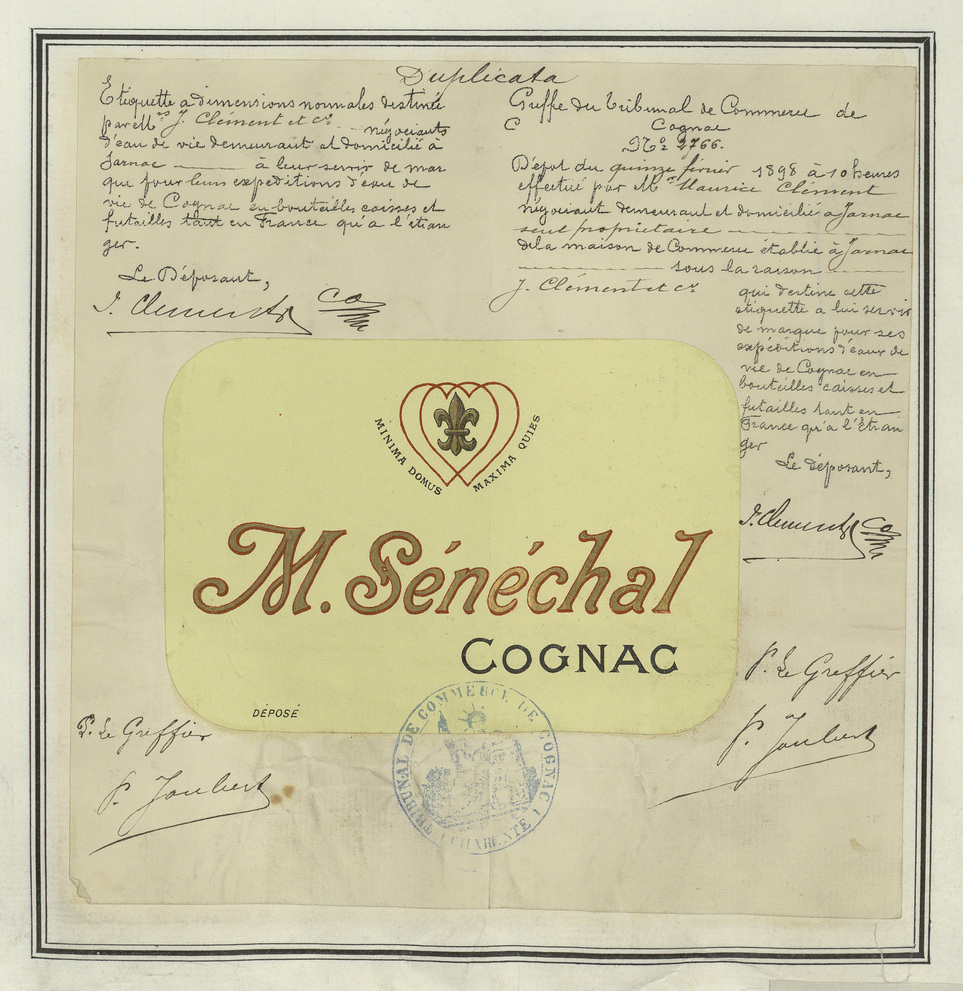 Duplicata
Etiquette a dimensions normales destinée
par MM.rs J. Clément et Cie négociants
d'eau de vie demeurant et domicilié à
Jarnac à leur servir de mar
que pour leurs expeditions d'eau de
vie de Cognac en bouteilles caisses et
futailles tant en France qu'a l'étran
ger.
Le Déposant,
J. Clement & Co
Greffe du Tribunal de Commerce de
C Cognac
No. 2766.
Dépot du quinze février 1898 à 10 heures
effectué par Mr Maurice Clément
négociant demeurant et domicilié à Jarnac
seul propriétaire
de la maison de Commerce établie à Jarnac
sous la raison
J. Clément et Cie
qui destine cette
etiquette a lui servir
de marque pour ses
expéditions d'eaux de
vie de Cognac en
bouteilles caisses et
futailles tant en
France qu'a l'étran
ger
Le déposant,
J. Clement & Co
MINIMA DOMUS MAXIMA QUIES
M. Sénéchal
COGNAC
DÉPOSÉ
P. Le Greffier
P. Joubert
P. Le Greffier
P. Joubert
TRIBUNAL DE COMMERCE DE COGNAC
(CHARENTE)